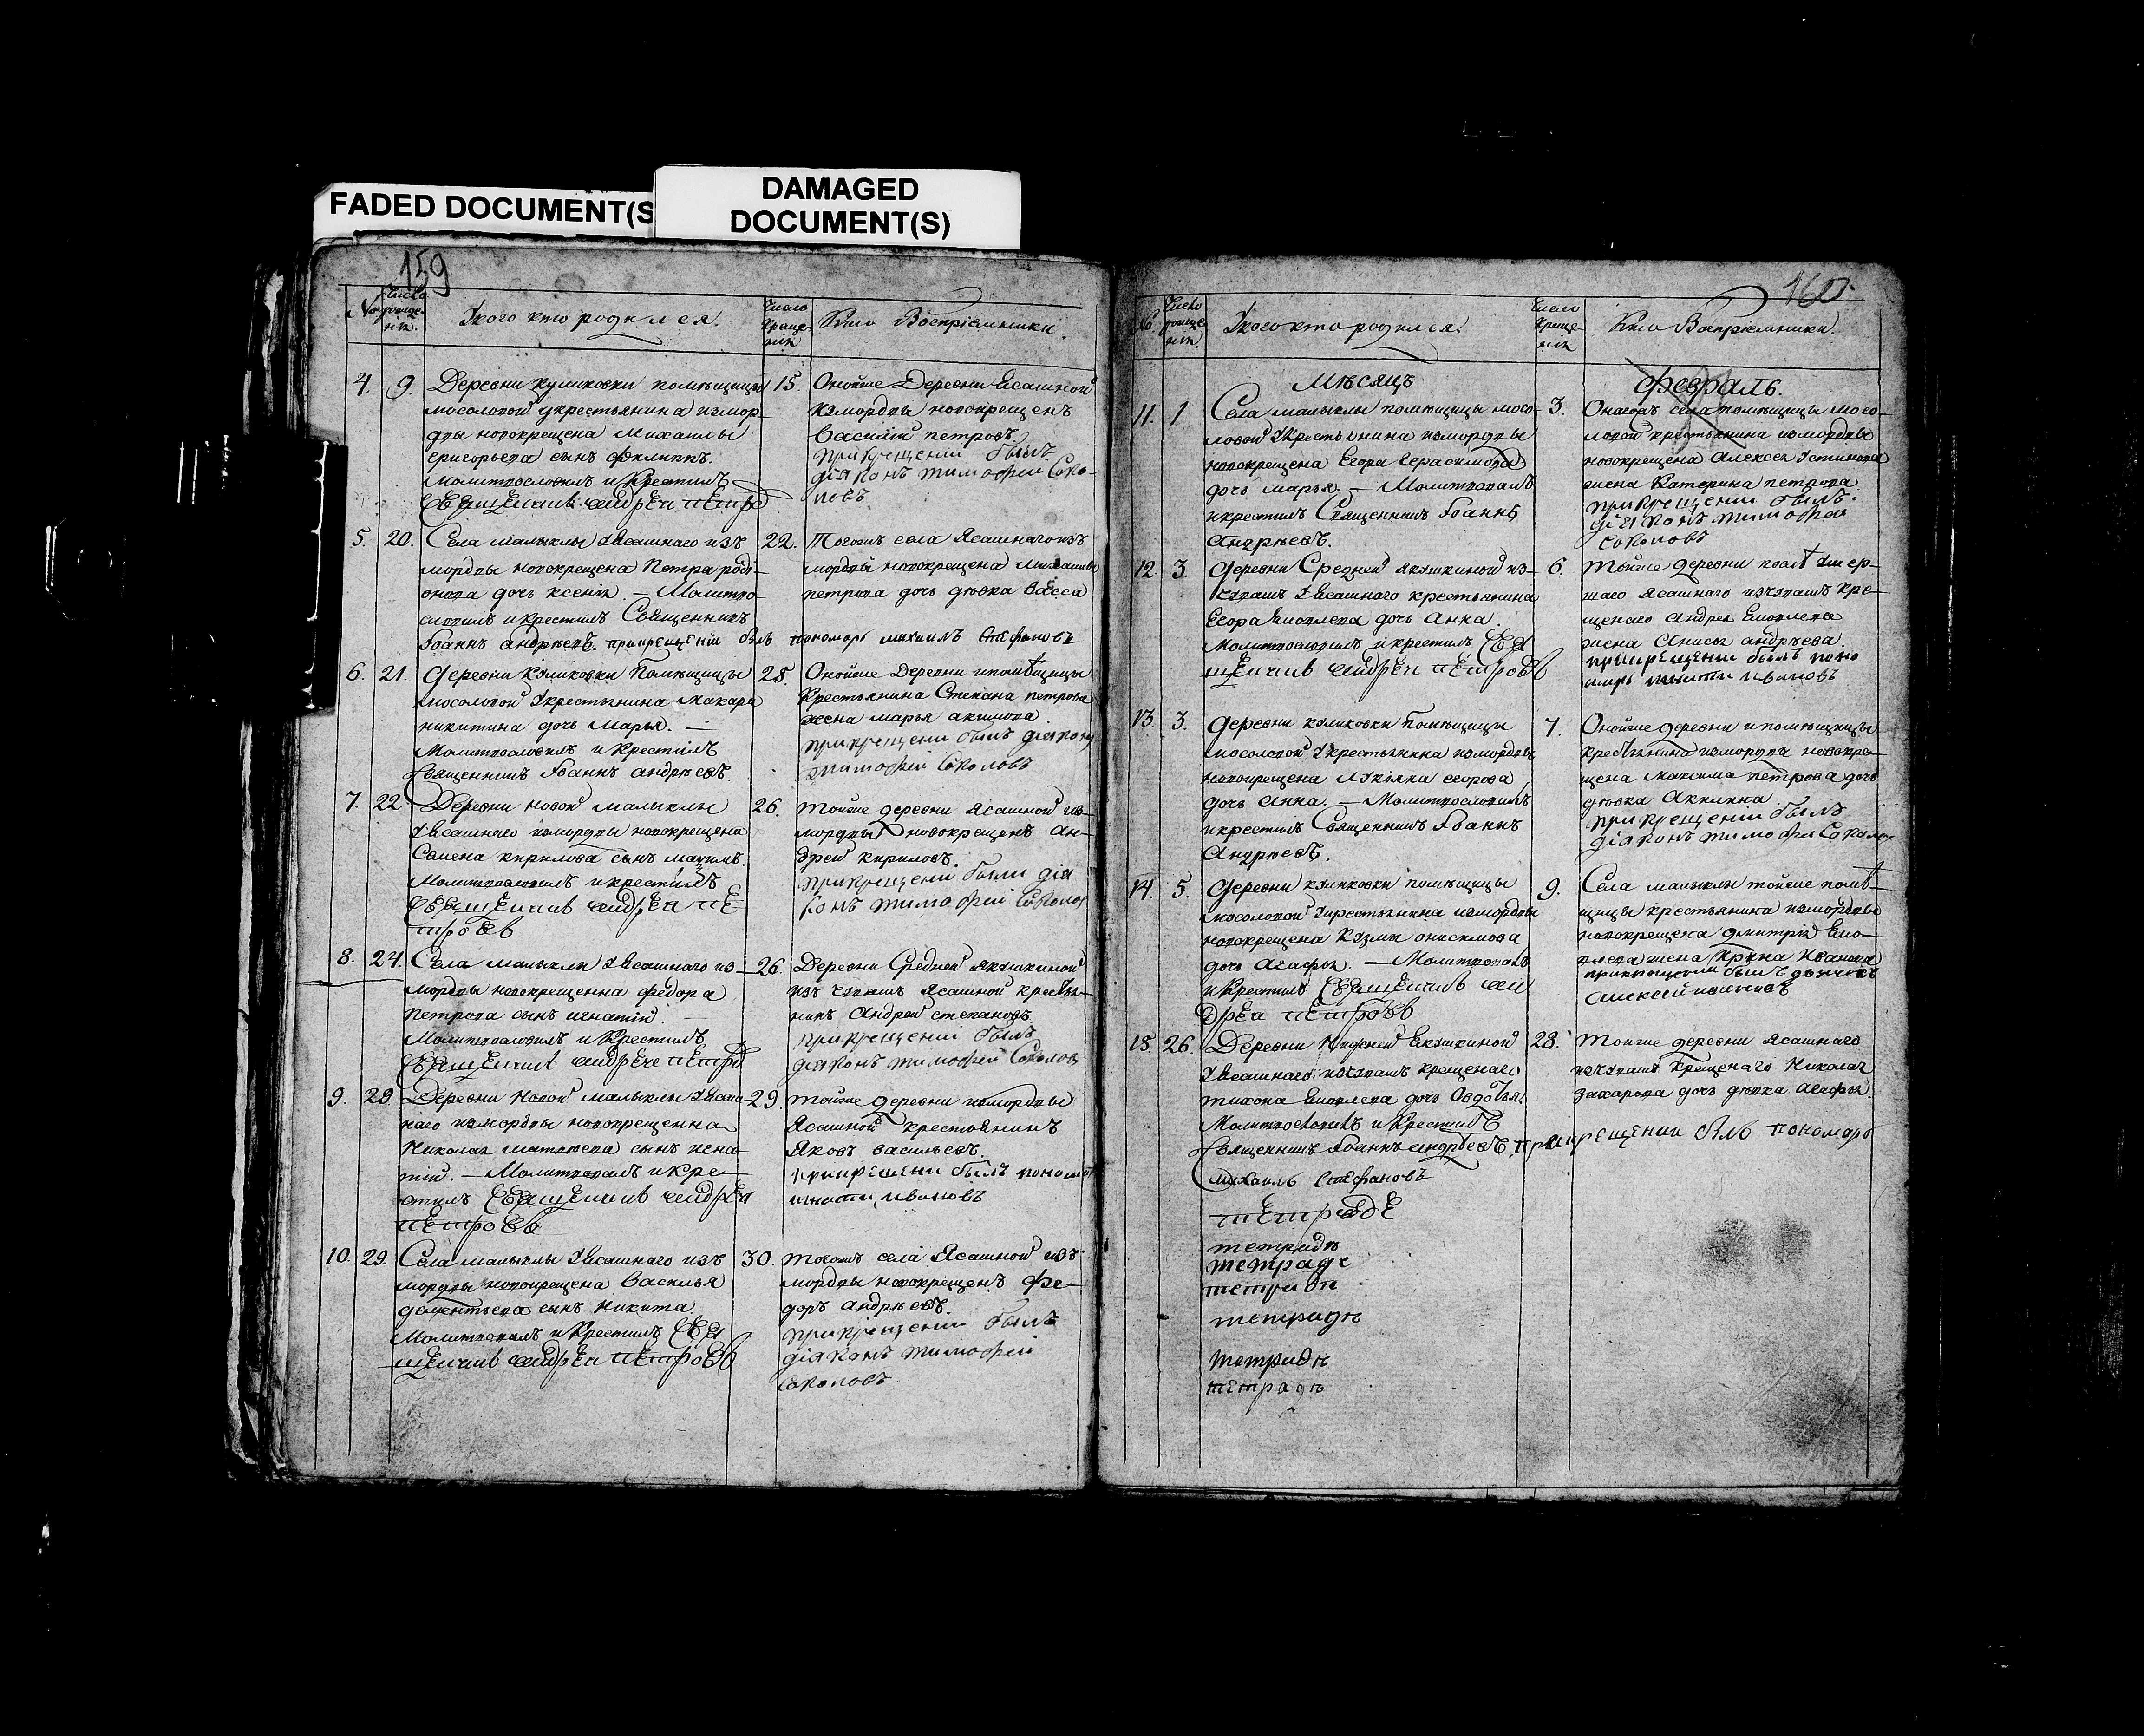 FADED DOCUMENT(S
DAMAGED
DOCUMENT(S)
159
№ Число рожде- нія. У кого кто родился. Число креще- нія Кто Воспріемники
4. 9. Деревни куликовки помѣщицы
мосоловой укрестьянина измор-
двы новокрещена Михаилы
григорьева сынъ филиппъ.
Молитвословилъ и Крестилъ
священникъ андреи петро
15. Оной же Деревни Ясашной
измордвы новокрещенъ
Василій петровъ.
прикрещеніи былъ
діяконъ тимофеи Соко-
ловъ
5. 20. Села малыклы Уясашнаго изъ
мордвы новокрещена Петра роді-
онова дочь ксенія. — Молитво-
словилъ и крестилъ Священникъ
Іоаннъ андрѣевъ. прикрещеніи былъ пономарь михаилъ Стефановъ
22. Тогожъ села Ясашнаго изъ
мордвы новокрещена
петрова дочь дѣвка васса
6. 21. Деревни куликовки Помѣщицы
мосоловой Укрестьянина макара
никитина дочь Марья. —
Молитвословилъ и крестилъ
Священникъ Іоаннъ андрѣевъ.
25. Оной же Деревни ипомѣщицы
Крестьянина Степана петрова
жена марья акимова.
прикрещени былъ діяконъ
тимофей Соколовъ
7. 22 Деревни новой малыклы
Уясашнаго измордвы новокрещена
Семена кирилова сынъ
Молитвословилъ икрестилъ
священникъ андреи пе
тровъ
26. тойже деревни Ясашной из-
мордвы новокрещенъ Ан-
дрей кириловъ.
прикрещени были дія
конъ тимофей Соколов
8. 24. Села малыклы Уясашнаго из-
мордвы новокрещенна федора
петрова сынъ игнатій. —
Молитвословилъ и Крестилъ
священникъ андреи петро
26. Деревни Средней якушкиной
изъ чувашъ Ясашной крестья-
нинъ Андрей степановъ
прикрещеніи былъ
діяконъ тимофей Соколов
9. 29 Деревни Новой малыклы Уясаш-
наго измордвы новокрещенна
Николая матвеева сынъ игна-
тій. — Молитвовалъ и кре-
стилъ священникъ андреи
петровъ
29. тойже деревни измордвы
Ясашной крестьянинъ
Яковъ васильевъ.
прикрещени былъ поном
игнати ивановъ
10. 29. Села малыклы Уясашнаго изъ
мордвы новокрещена Василья
дементьева сынъ Никита.
Молитвовалъ и Крестилъ свя
щенникъ андреи петровъ
30. тогожъ села Ясашной изъ
мордвы новокрещенъ Фе-
доръ андрѣевъ.
прикрещеніи былъ
діяконъ тимофей
Соколовъ
160.
№ Число рожде- нія. У кого кто родился. Число креще- нія Кто Воспріемники.
Мѣсяцъ февраль.
11. 1 Села малыклы помѣщицы мосо-
ловой Укрестьянина измордвы
новокрещена Егора Герасимова
дочь марья. — Молитвовалъ
икрестилъ Священникъ Іоаннъ
Андрѣевъ.
3. Онагожъ села помѣщицы мосо-
ловой крестьянина измордвы
новокрещена Алексея Устинова
жена Катерина петрова.
прикрещении былъ
діяконъ тимофей
Соколовъ
12. 3. Деревни Средней якушкиной из-
чувашъ Уясашнаго крестьянина
Егора дочь Анна.
Молитвословилъ и крестилъ свя
щенникъ андреи петровъ
6. тойже деревни
Ясашнаго изчувашъ кре-
щенаго Андрея
жена Анисья андрѣева
прикрещени былъ поно
марь игнати ивановъ
13. 3. Деревни куликовки Помѣщицы
мосоловой Укрестьянина измордвы
новокрещена егорова
дочь Анна. — Молитвословилъ
икрестилъ Священникъ Іоаннъ
Андрѣевъ.
7. Оной же деревни и помѣщицы
крестьянина измордвы новокре-
щена Максима петрова дочь
дѣвка Акилина
прикрещеніи былъ
діяконъ тимофеи Соколов
14. 5. Деревни куликовки помѣщицы
мосоловой Укрестьянина измордвы
новокрещена Кузмы онисимова
дочь Агафья. — Молитвовалъ
и Крестилъ священникъ ан
дреи петровъ
9. Села малыклы тойже помѣ-
щицы крестьянина измордвы
новокрещена димитрія
жена Ирина Иванова
прикрещении былъ дьячекъ
алексей
15. 26. Деревни Нижней Якушкиной
Уясашнаго изчувашъ крещенаго
тихона дочь Овдотья.
Молитвословилъ и Крестилъ
Священникъ Іоаннъ андрѣевъ, прикрещении былъ пономарь
михаилъ Стефановъ
28. тойже деревни Ясашнаго
изчувашъ крещенаго Николая
захарова дочь дѣвка Агафья.
тетраде
тетрадь
тетраде
тетради
тетрадь
тетрадь
тетрадь